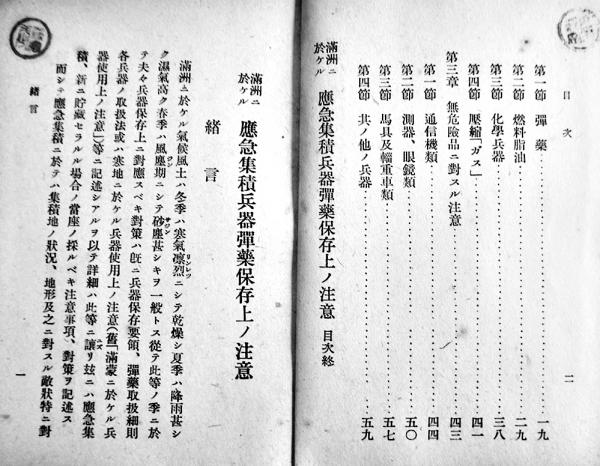 目次
二
第一節 彈藥 一九
第二節 燃料脂油 二九
第三節 化學兵器 三八
第四節 壓縮「ガス」 四一
第三章 無危險品ニ對スル注意 四三
第一節 通信機類 四四
第二節 測器、眼鏡類 五〇
第三節 馬具及輜重車類 五七
第四節 其ノ他ノ兵器 五九
滿洲ニ於ケル 應急集積兵器彈藥保存上ノ注意 目次終
滿洲ニ於ケル 應急集積兵器彈藥保存上ノ注意
緒言
滿洲ニ於ケル氣候風土ハ冬季ハ寒氣凛烈リンレツニシテ乾燥シ夏季ハ降雨甚シ
ク濕氣高ク春季ハ風塵期ニシテ砂塵甚シキヲ一般トス從テ此等ノ季ニ於
テ夫々兵器保存上ニ對應スベキ對策ハ旣ニ兵器保存要領、彈藥取扱細則
各兵器ノ取扱法或ハ寒地ニ於ケル兵器使用上ノ注意(舊「滿蒙ニ於ケル兵
器使用上ノ注意」)等ニ記述シアルヲ以テ詳細ハ此等ニ讓リ玆ニハ應急集
積、新ニ貯藏セラルル場合ノ當座ノ採ルベキ注意事項、對策ヲ記述ス
而シテ應急集積ニ於テハ集積地ノ狀況、地形及之ニ對スル敵狀特ニ對
緒言
一